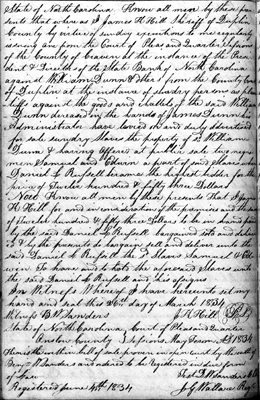 State of North Carolina. Know all men by these pre
sents that whereas I James K Hill Sheriff of Duplin
County by virtue of sundry executions to me regularly
issuing are from the Court of Pleas and Quarter Sessions
of the County of Craven at the instance of the Presi
dent & Directors of the State Bank of North Carolina
against William Dunn & others from the County Court
of Duplin at the instance of sundry persons as plain
tiffs against the goods and chattels of the said William
Dunn deceased in the hands of James Dunn his
Administrator have levied on and duly advertised
for sale sundry slaves the property of
Dunn & having offered at public sale two negro
men Samuel and Edwin a part of said slaves when
Daniel L Russell became the highest bidder for the
price of Twelve hundred & fifty three Dollars
Now Know all men by these presents That I James
K Hill for and in consideration of the premises and sum
of Twelve hundred & fifty three Dollars to me in hand paid
by the said Daniel L Russell bargained sold and deliver
ed & by these presents do bargain sell and deliver unto the
said Daniel L Russell the slaves Samuel & Ed
win To have and to hold the aforesaid slaves unto
the said Daniel L Russell and his assigns
In Witness Whereof I have hereunto set my
hand and seal this 26th day of March 1834
Witness B W Sanders J K Hill
State of North Carolina, Court of Pleas and Quarter
Onslow County Sessions. May Term AD 1834
Then the within bill of sale proven in open court by the oath of
Benj W Sanders and ordered to be registered
Registered June 4th 1834 J G Wallace Reg